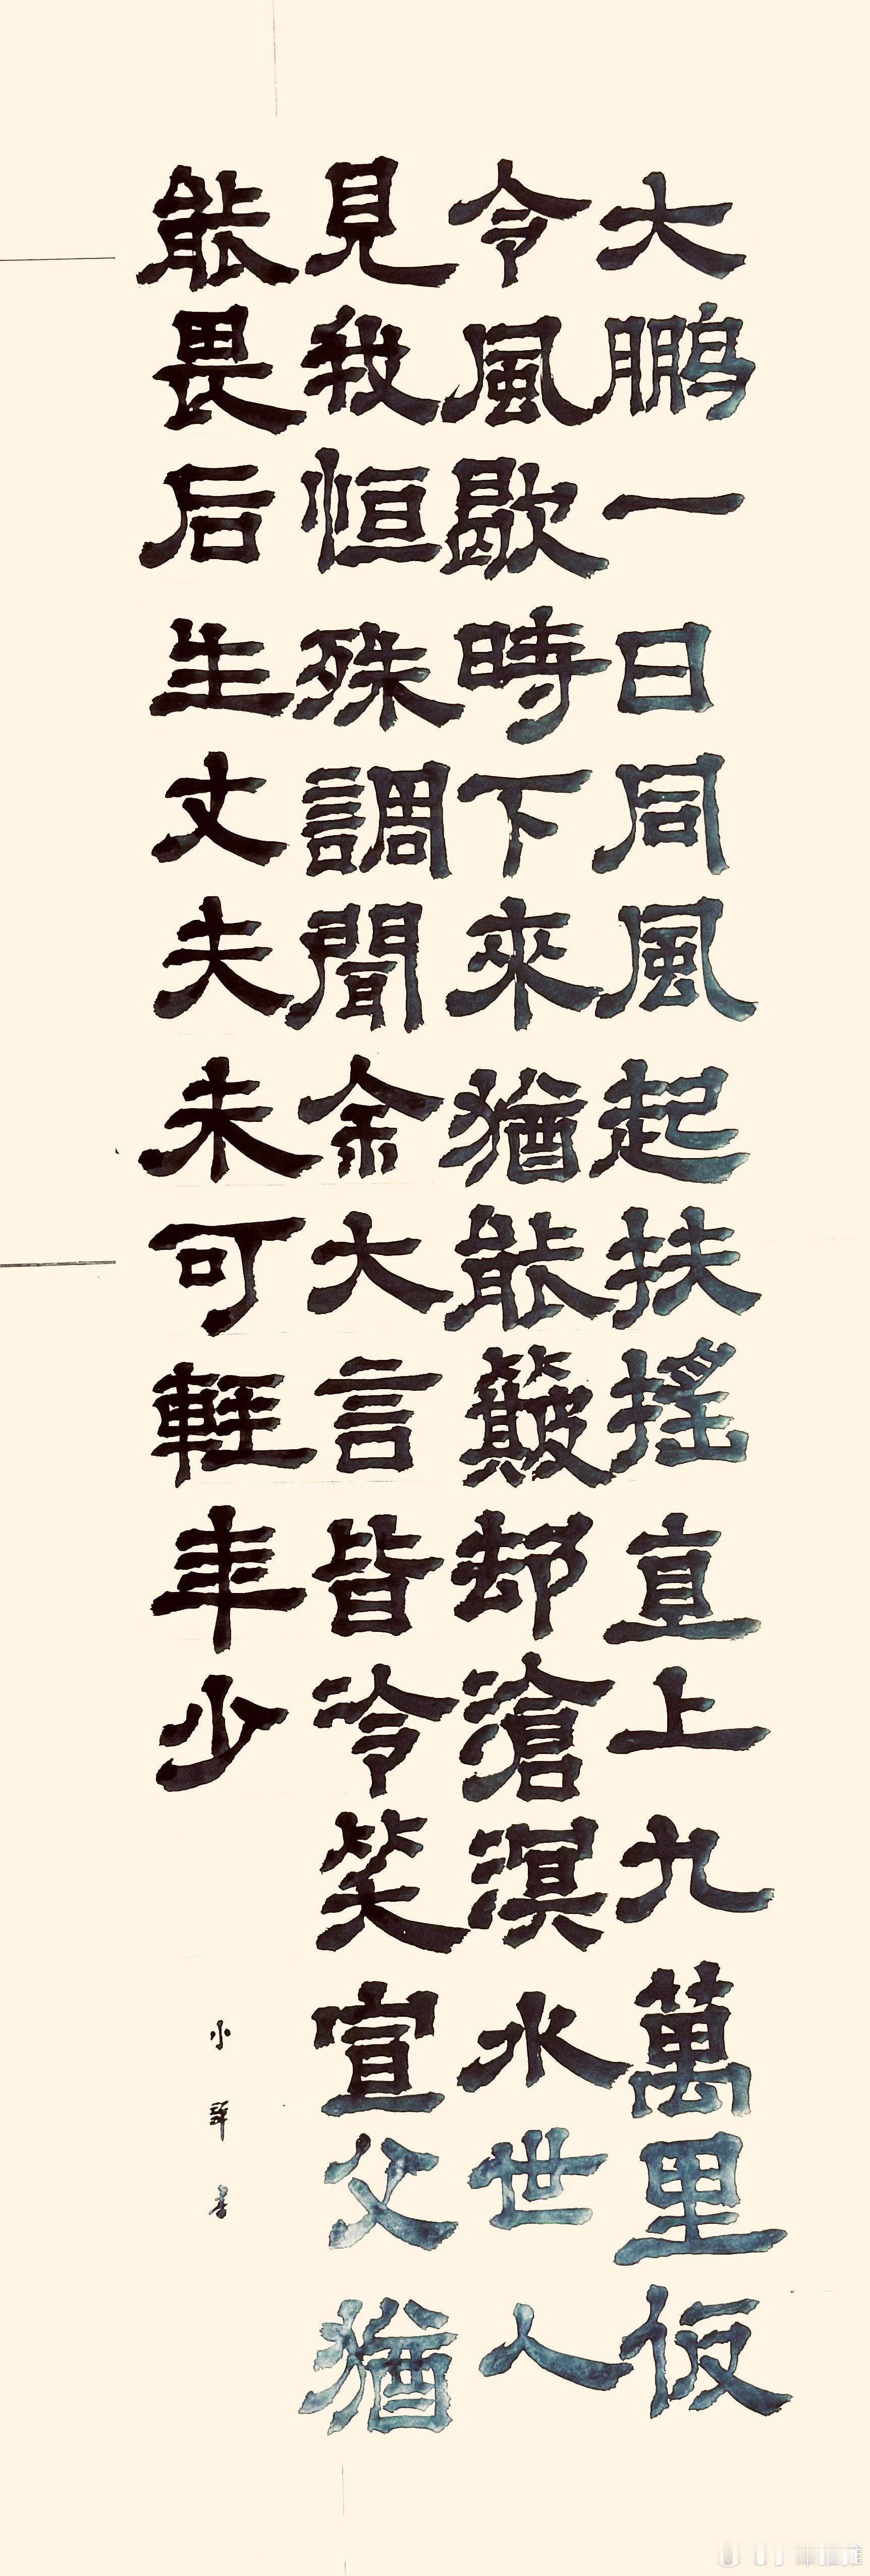 大鵬一日同風起扶搖直上九萬里仮
令風歇時下來猶能簸却滄溟水世人
見我恒殊調聞余大言皆冷笑宣父猶
能畏后生丈夫未可輕年少
小譁書